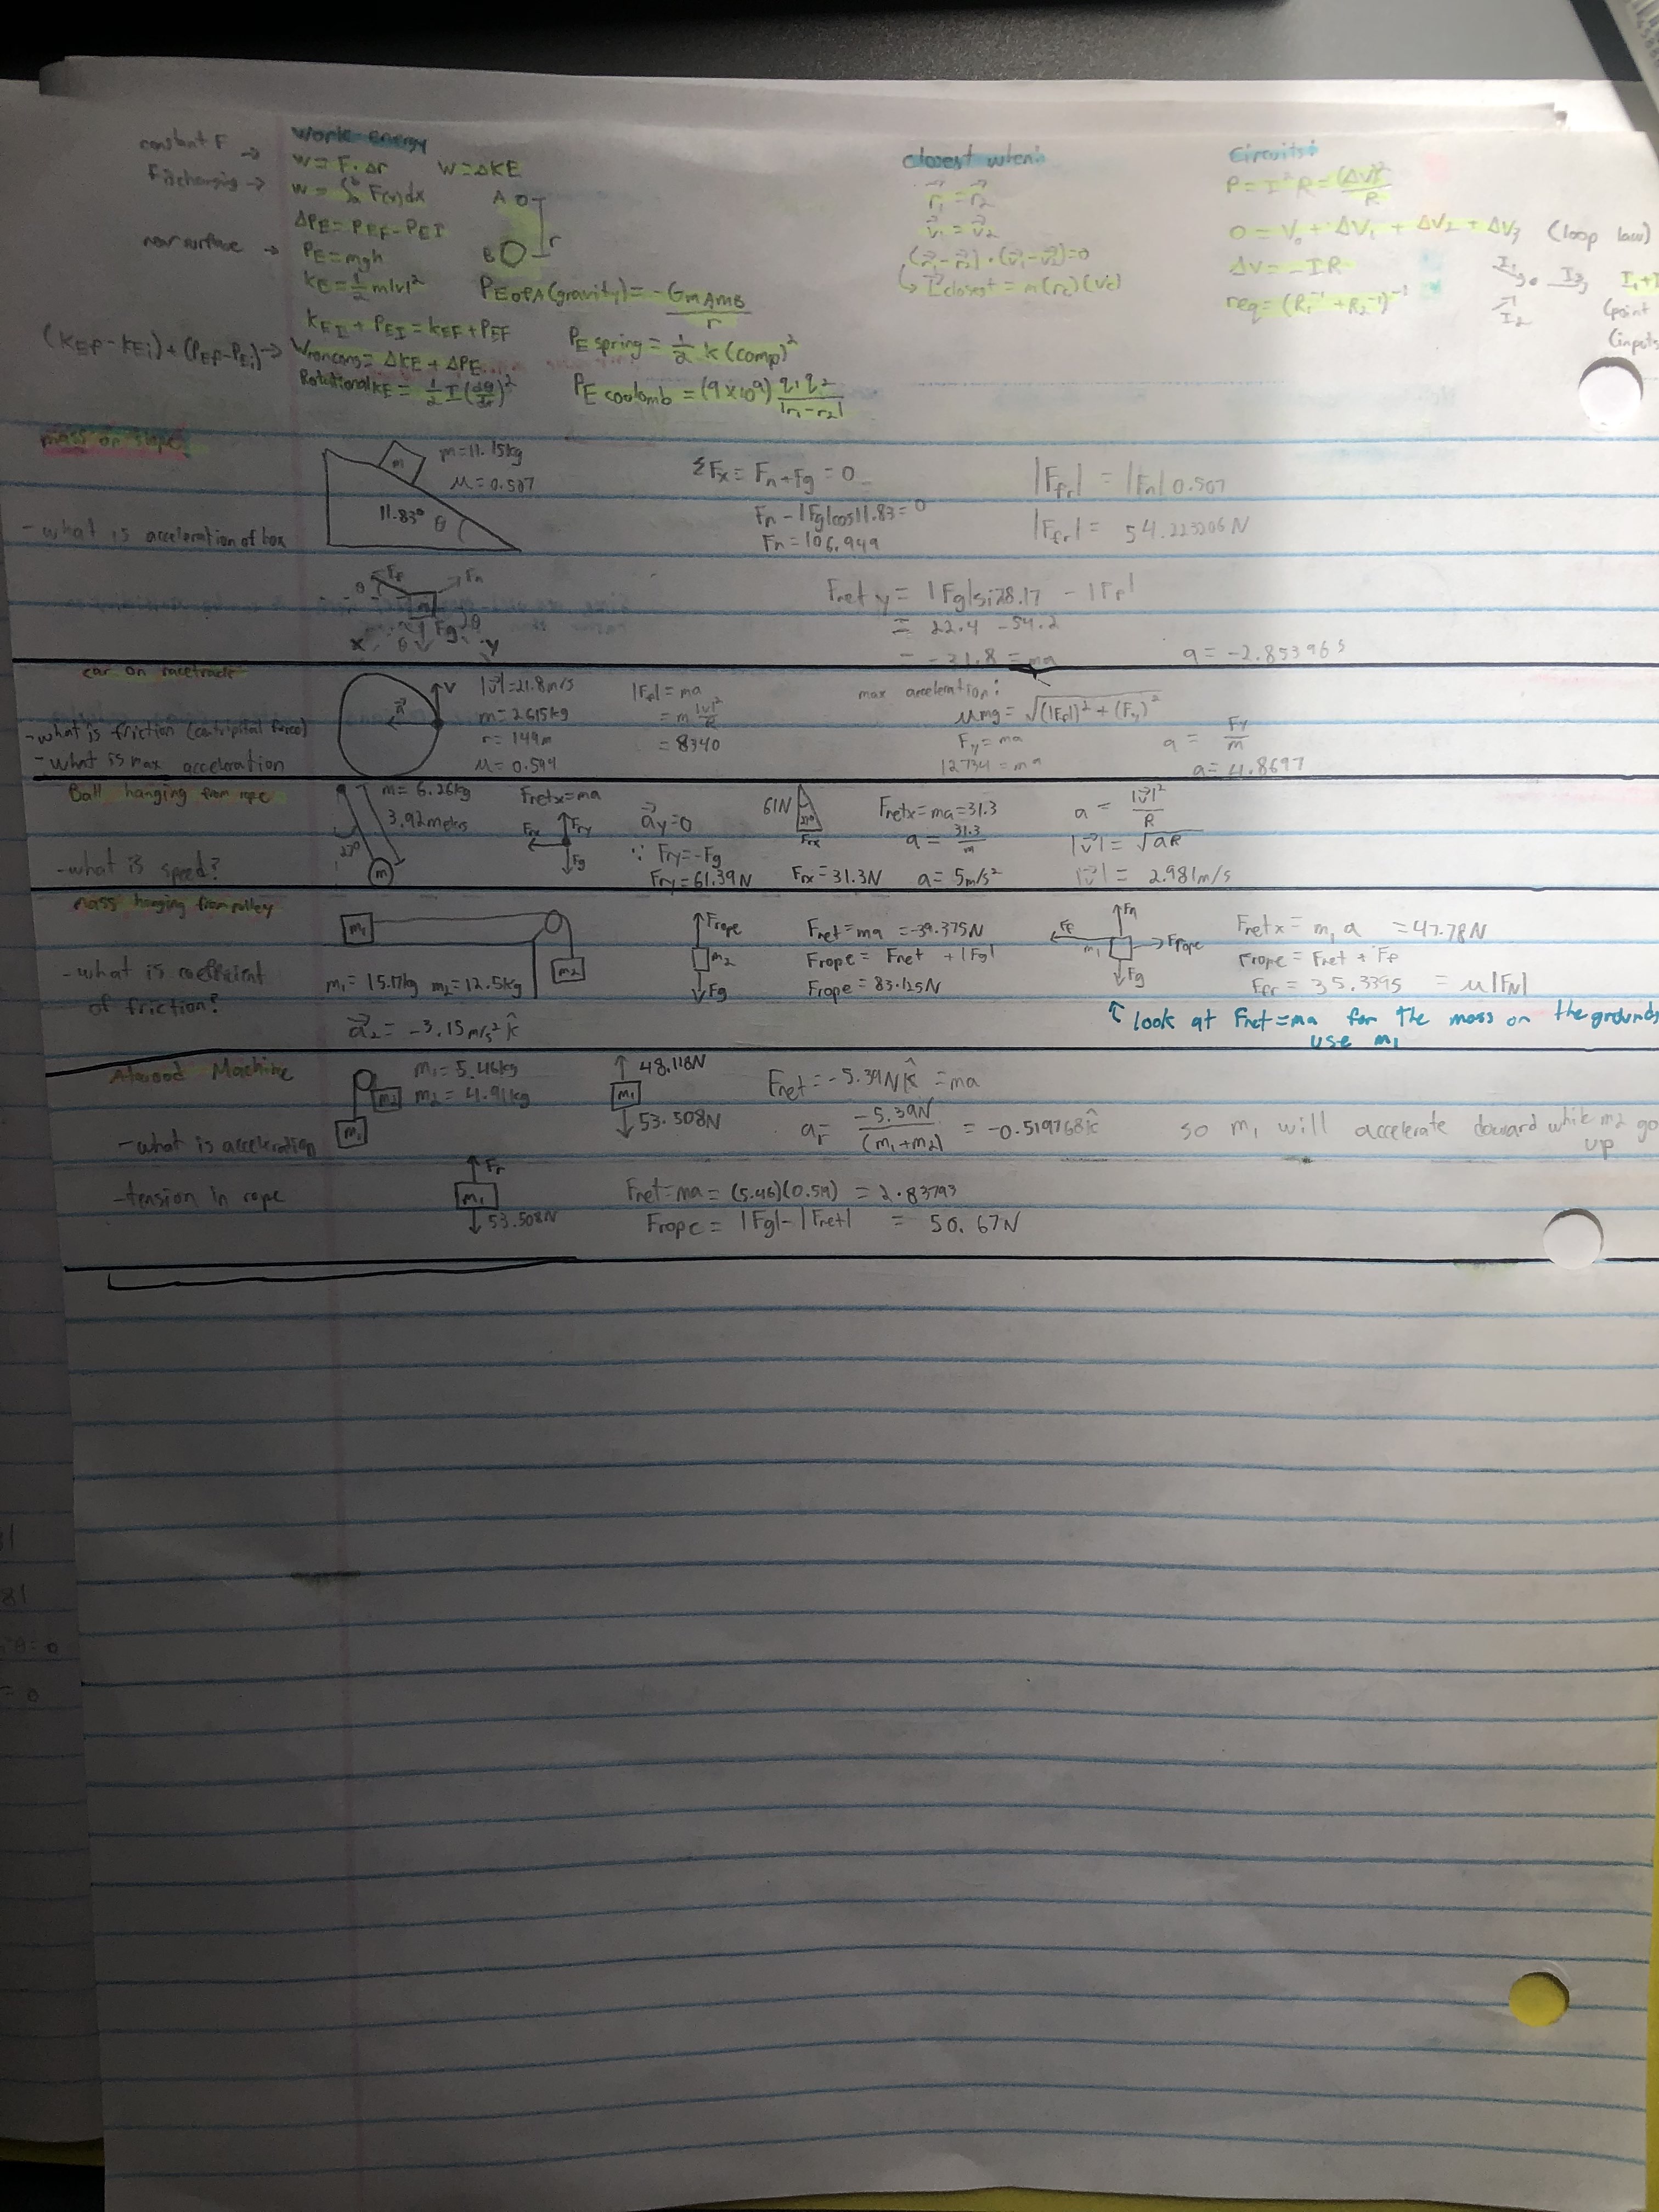 constant F →
work-energy
W = F · Δr W = ΔKE
F is changing → W = ∫ F(r) dx
ΔPE = PEF - PEI
near surface → PE = mgh
KE = 1/2 m|v|²
A
B
r
PE of A (gravity) = -GmAmB / r
KEI + PEI = KEF + PEF
(KEF - KEi) + (PEF - PEi) → Wnoncons = ΔKE + ΔPE
Rotational KE = 1/2 I (dθ/dt)²
PE spring = 1/2 k (comp)²
PE coulomb = (9x10⁹) q1q2 / |r1-r2|
closest when:
r1 = r2
v1 = v2
(r1 - r2) · (v1 - v2) = 0
↳ Lclosest = m(rc)(vc)
Circuits:
P = I²R = (ΔV)²/R
0 = V0 + ΔV1 + ΔV2 + ΔV3 (loop law)
ΔV = -IR
req = (R1⁻¹ + R2⁻¹)⁻¹
I1
I3
I2
(point
(inputs
mass on slope
- what is acceleration of box
m
m = 11.15kg
μ = 0.507
11.83° θ
ΣFx = Fn + Fg = 0
Fn - |Fg|cos11.83 = 0
Fn = 106.949
|Ffr| = |Fn| 0.507
|Ffr| = 54.223206 N
θ Ff Fn
m
x θ Fg θ y
Fnet y = |Fg|si28.17 - |Ff|
= 22.4 - 54.2
= -31.8 = ma
a = -2.853965
car on racetrack
- what is friction (centripital force)
- what is max acceleration
a
v
|v| = 21.8m/s
m = 2615kg
r = 149m
μ = 0.594
|Ff| = ma
= m |v|²/R
= 8340
max acceleration:
μmg = √(|Ff|)² + (Fy)²
Fy = ma
12734 = ma
a = Fy/m
a = 4.8697
Ball hanging from rope
- what is speed?
m = 6.26kg
3.92meters
27°
m
Fnetx = ma
Frx Fry
Fg
ay = 0
∵ Fry = -Fg
Fry = 61.39N
61N
27°
Frx
Frx = 31.3N
Fnetx = ma = 31.3
a = 31.3/m
a = 5m/s²
a = |v|²/R
|v| = √aR
|v| = 2.981m/s
mass hanging from pulley
- what is coefficient
of friction?
m1
m2
m1 = 15.17kg m2 = 12.5kg
a2 = -3.15m/s² k̂
Frope
m2
Fg
Fnet = ma = -39.375N
Frope = Fnet + |Fg|
Frope = 83.125N
Fn
Ff m1 Frope
Fg
Fnetx = m1 a = 47.78N
Frope = Fnet + Ff
Ffr = 35.3395 = μ|FN|
↑ look at Fnet = ma for the mass on the grounds
use m1
Atwood Machine
- what is acceleration
m1 = 5.46kg
m2 = 4.91kg
m2
m1
48.118N
m1
53.508N
Fnet = -5.39N k̂ = ma
ar = -5.39N / (m1 + m2) = -0.519768 k̂
so m1 will accelerate doward while m2 go
up
- tension in rope
Fr
m1
53.508N
Fnet = ma = (5.46)(0.519) = 2.83793
Frope = |Fg| - |Fnet| = 50.67N